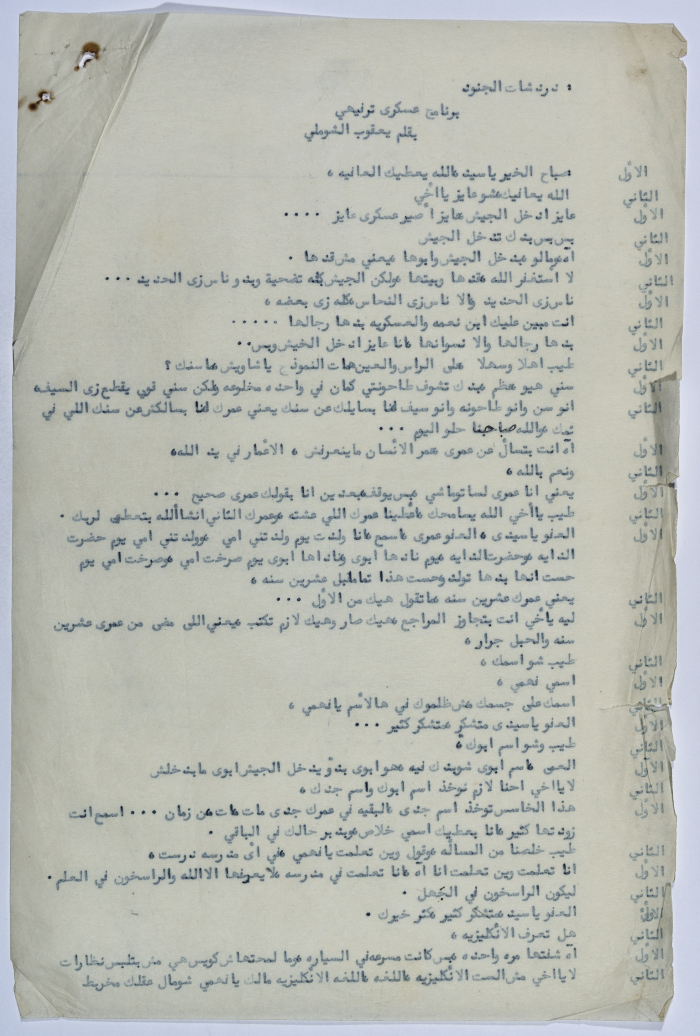 دردشات الجنود :
برنامج عسكرى ترفيهي
بقلم يعقوب الشوملي
الاول صباح الخير ياسيد الله يعطيك العافيه ،
الثاني الله يعافيك شو عايز يااخي
الاول عايز ادخل الجيش عايز اصير عسكرى عايز ....
الثاني بس بس بدك تدخل الجيش
الاول آه ومالو بدخل الجيش وابوها يعني مش قدها .
الثاني لا أستغفر الله قدها وبيتها ولكن الجيش كله تضحية وبدو ناس زى الحديد ...
الاول ناس زى الحديد والا ناس زى النحاس كله زى بعضه ،
الثاني انت مبين عليك ابن نعمه والعسكريه بدها رجالها .....
الاول بدها رجالها والا نسوانها انا عايز ادخل الخيش وبس..
الثاني طيب اهلا وسهلا على الراس والعين هات النموذج ياشاويش ما سنك ؟
الاول سني هيو عظم بدك تشوف طاحونتي كمان في واحده مخلوعه ولكن سني قوي بيقطع زى السيف
الثاني انو سن وانو طاحونه وانو سيف انا بسايلك عن سنك يعني عمرك انا بسالكش عن سنك اللي في
تمك والله صباحنا حلو اليوم ...
الاول آه انت بتسأل عن عمرى عمر الانسان ماينعرفش ، الاعمار في يد الله
الثاني ونعم بالله ،
الاول يعني انا عمرى لسا توماشي بس يوقف بعدين انا بقولك عمرى صحيح ...
الثاني طيب يااخي الله يسامحك اعطينا عمرك اللي عشته وعمرك الثاني انشاالله بتعطى لربك .
الاول العفو ياسيدى ، العفو عمرى اسمع انا ولدت يوم ولدتني امي وولدتني امي يوم حضرت
الدايه وحضرت الدايه يوم نادها ابوى ونادها ابوى يوم صرخت امي وصرخت امي يوم
حست انها بدها تولد وحست هذا تمامابل عشرين سنه ،
الثاني يعني عمرك عشرين سنه ماتقول هيك من الاول ...
الاول ليه يااخي انت بتجاوز المراجع هيك صار وهيك لازم تكتب يعني اللى مضى من عمرى عشرين
سنه والحبل جرار ،
الثاني طيب شو اسمك ،
الاول اسمي فهمي ،
الثاني اسمك على جسمك مش ظلموك في هالاسم يافهمي ،
الاول العفو ياسيدى متشكر متشكر كثير ...
الثاني طيب وشو اسم ابوك ،
الاول العمى اسم ابوى شو بدك فيه هو ابوى بدو يدخل الجيش ابوى مابدخلش
الثاني لا يااخي احنا لازم نوخذ اسم ابوك واسم جدك ،
الاول هذا الخامس توخذ اسم جدى البقيه في عمرك جدى مات مات من زمان ... اسمع انت
زودتها كثير انا بعطيك اسمي خلاص وبدبر حالك في الباقي .
الثاني طيب خلصنا من المساله وقول وين تعلمت يافهمي في اى مدرسه درست ،
الاول انا تعلمت وين تعلمت انا آه انا تعلمت في مدرسه لا يعرفها الا الله والراسخون في العلم .
الثاني ليكون الراسخون في الجهل .
الاول العفو ياسيد متشكر كثير كثر خيرك .
الثاني هل تعرف الانكليزيه ،
الاول آه شفتها مره واحده بس كانت مسرعه في السياره وما لمحتهاش كويس هي مش بتلبس نظارات
الثاني لا يااخي مش الست الانكليزيه اللغه اللغه الانكليزيه مالك يافهمي شومال عقلك مخربط